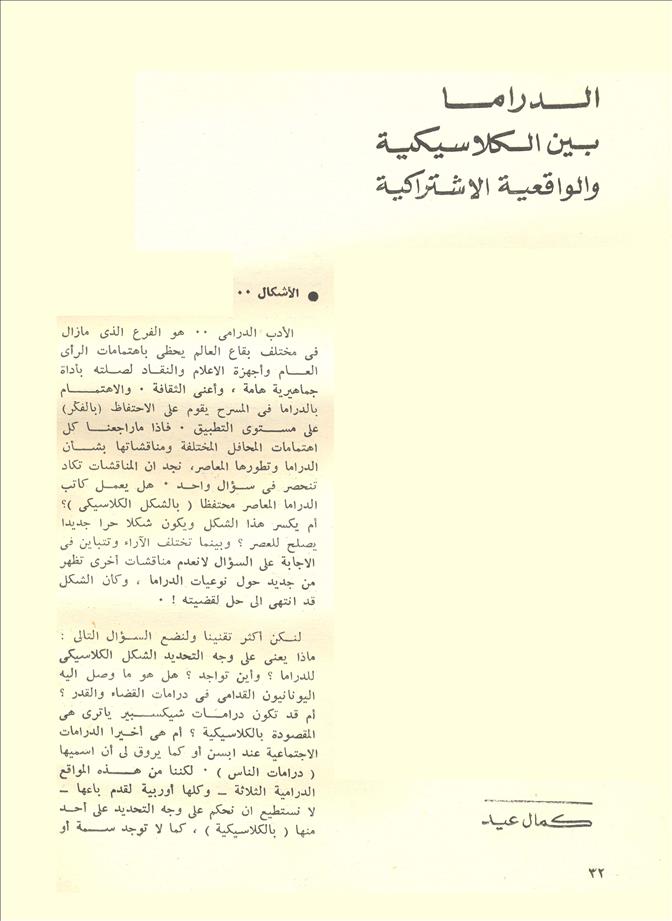 الدراما
بين الكلاسيكية
والواقعية الاشتراكية
● الأشكال ٠٠
الأدب الدرامى ٠٠ هو الفرع الذى مازال
فى مختلف بقاع العالم يحظى باهتمامات الرأى
العام وأجهزة الاعلام والنقاد لصلته بأداة
جماهيرية هامة ، وأعنى الثقافة ٠ والاهتمام
بالدراما فى المسرح يقوم على الاحتفاظ (بالفكر)
على مستوى التطبيق ٠ فاذا ماراجعنا كل
اهتمامات المحافل المختلفة ومناقشاتها بشأن
الدراما وتطورها المعاصر، نجد ان المناقشات تكاد
تنحصر فى سؤال واحد ٠ هل يعمل كاتب
الدراما المعاصر محتفظا ( بالشكل الكلاسيكى )؟
أم يكسر هذا الشكل ويكون شكلا حرا جديدا
يصلح للعصر ؟ وبينما تختلف الآراء وتتباين فى
الاجابة على السؤال لانعدم مناقشات أخرى تظهر
من جديد حول نوعيات الدراما ، وكأن الشكل
قد انتهى الى حل لقضيته ! ٠
لنكن أكثر تقنينا ولنضع السؤال التالى :
ماذا يعنى على وجه التحديد الشكل الكلاسيكى
للدراما ؟ وأين تواجد ؟ هل هو ما وصل اليه
اليونانيون القدامى فى درامات القضاء والقدر ؟
أم قد تكون درامات شيكسبير ياترى هى
المقصودة بالكلاسيكية ؟ أم هى أخيرا الدرامات
الاجتماعية عند ابسن أو كما يروق لى أن اسميها
( درامات الناس ) ٠ لكننا من هذه المواقع
الدرامية الثلاثة ــ وكلها أوربية لقدم باعها ــ
لا نستطيع ان نحكم على وجه التحديد على أحد
منها ( بالكلاسيكية ) ، كما لا توجد سمة أو
كمال عيد
٣٢